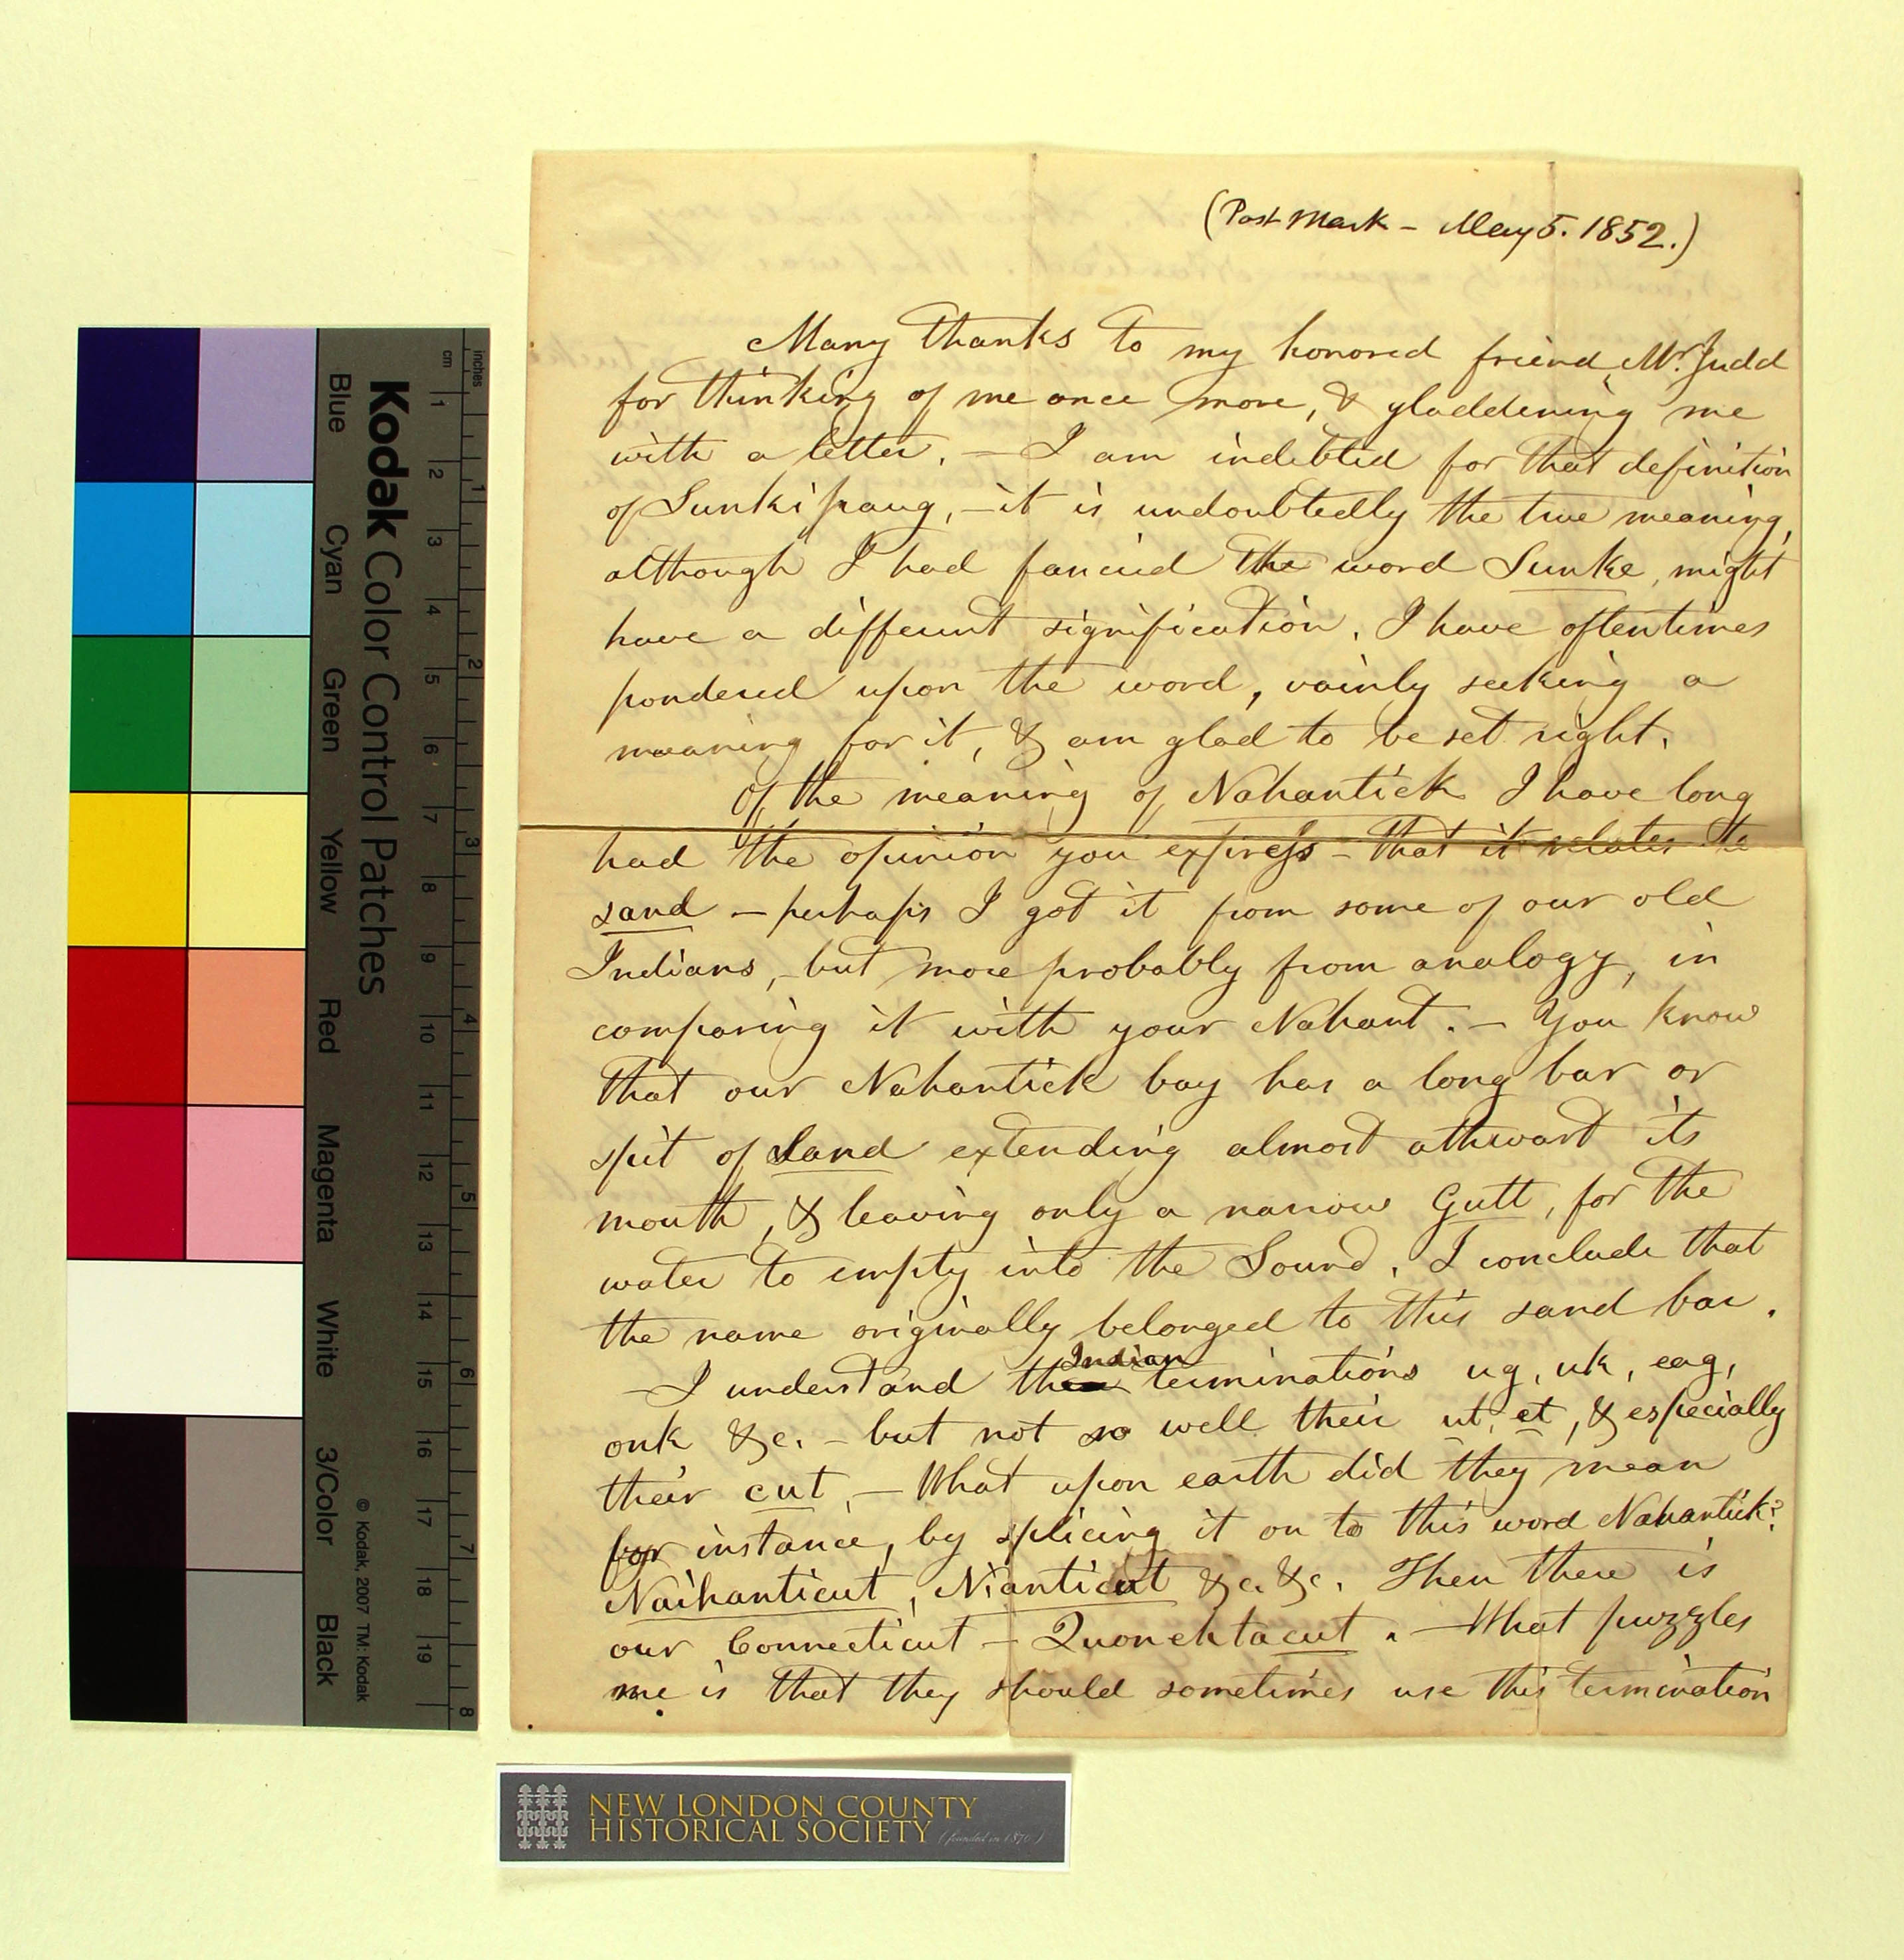 (Post Mark - May 5. 1852.)
Many thanks to my honored friend, Mr. Judd
for thinking of me once more, & gladdening me
with a letter. - I am indebted for that definition
of Sunkipaug, - it is undoubtedly the true meaning,
although I had fancied the word Sunke, might
have a different signification. I have oftentimes
pondered upon the word, vainly seeking a
meaning for it, & am glad to be set right.
Of the meaning of Nahantick I have long
had the opinion you express - that it relates to
sand - perhaps I got it from some of our old
Indians, - but more probably from analogy, in
comparing it with your Nahant. - You know
that our Nahantick bay has a long bar or
spit of sand extending almost athwart its
mouth, & leaving only a narrow Gutt, for the
water to empty into the Sound. I conclude that
the name originally belonged to this sand bar.
- I understand the Indian terminations ug, uk, eag,
onk &c. - but not so well their ut, et, & especially
their cut. - What upon earth did they mean
for instance, by splicing it on to this word Nahantick?
Naihanticut, Nianticut &c. &c. Then there is
our Connecticut - Quonehtacut. - What puzzles
me is that they should sometimes use this termination
Kodak Color Control Patches
Blue Cyan Green Yellow Red Magenta White 3/Color Black
© Kodak, 2007 TM: Kodak
inches 1 2 3 4 5 6 7 8
cm 1 2 3 4 5 6 7 8 9 10 11 12 13 14 15 16 17 18 19
NEW LONDON COUNTY
HISTORICAL SOCIETY (founded in 1870)